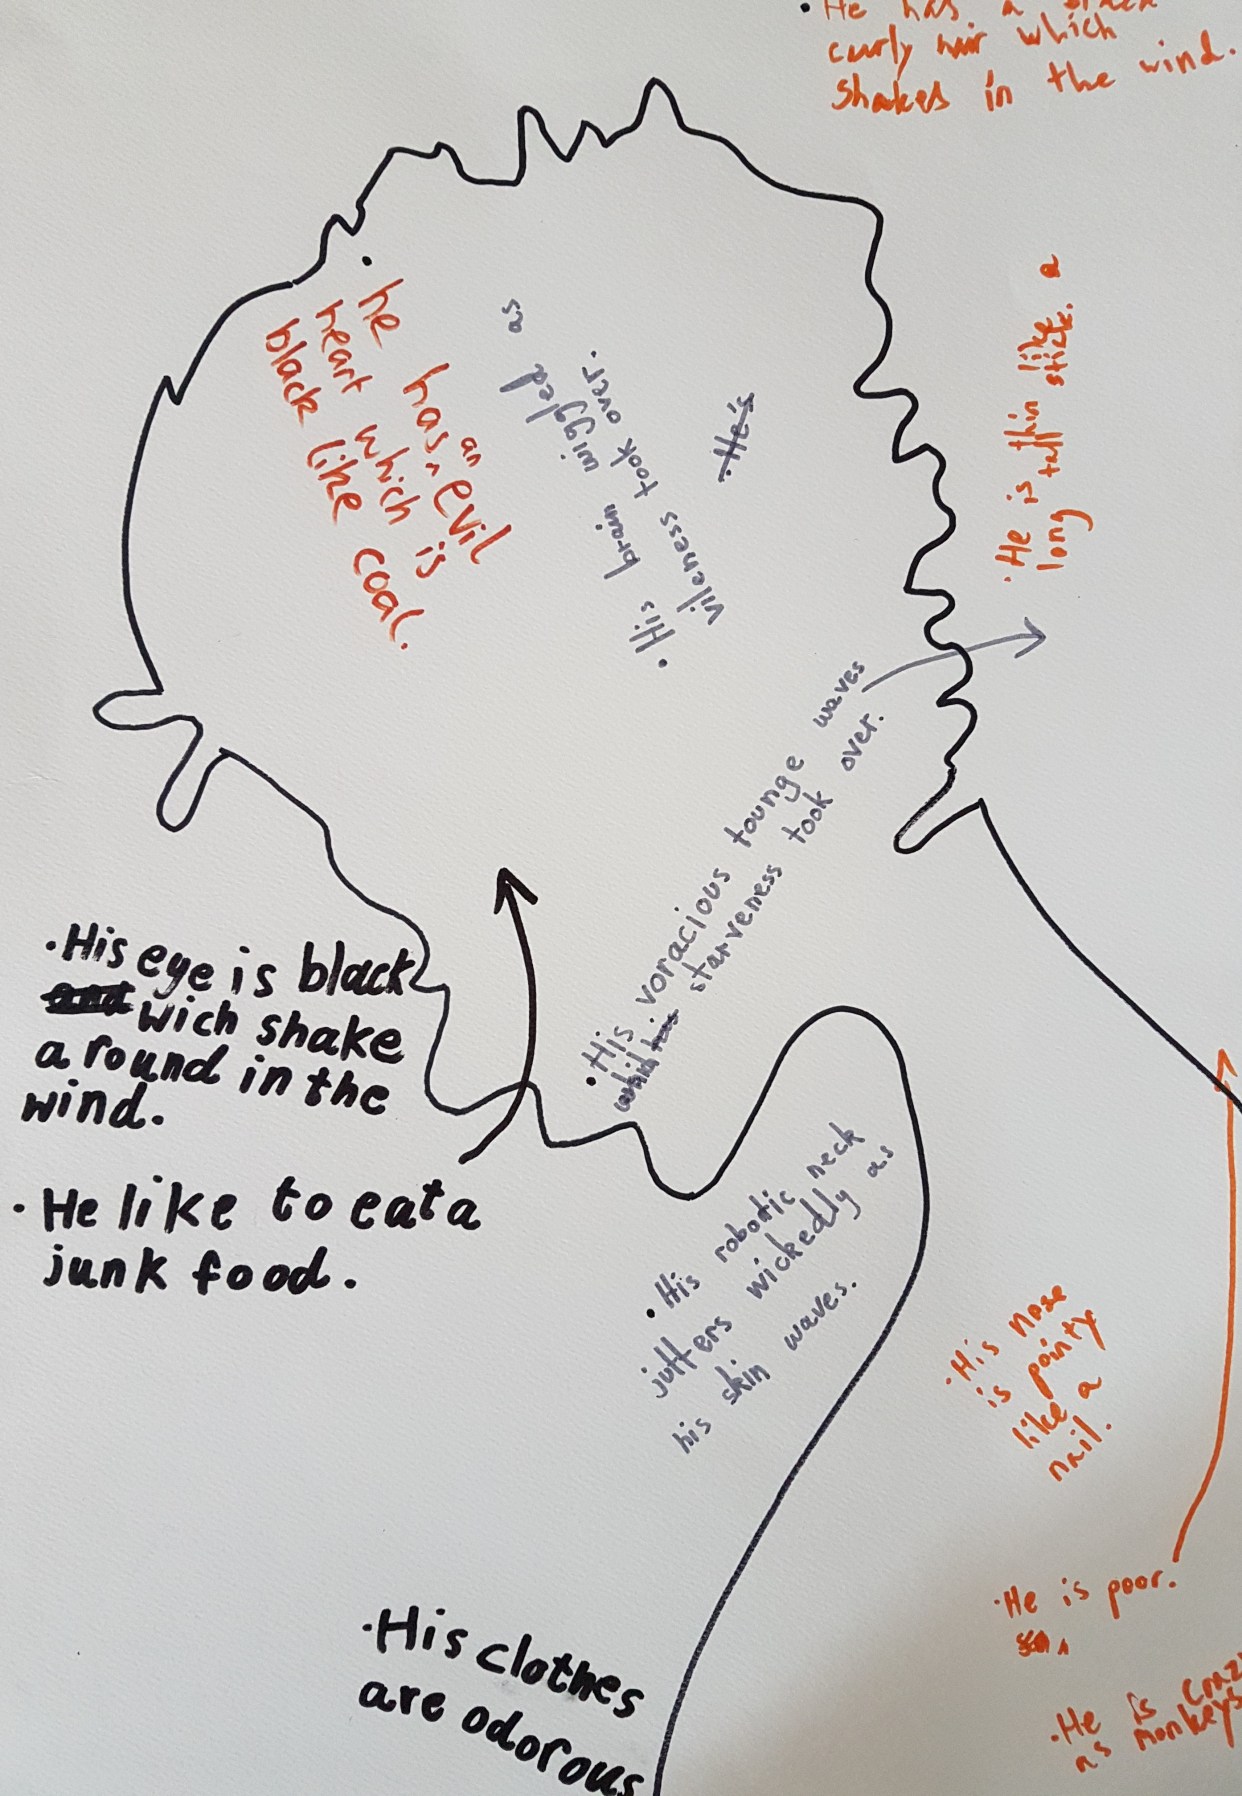 • He has a black
curly hair which
shakes in the wind.
• he has an evil
heart which is
black like coal.
• His brain wiggled as
vileness took over.
• He's
• He is thin like a
long tall stick.
• His voracious tounge waves
starveness took over.
• His eye is black
and wich shake
around in the
wind.
• He like to eat a
junk food.
• His robotic neck
jutters wickedly as
his skin waves.
• His nose
is pointy
like a
nail.
• He is poor.
• He is crazy
as monkeys
• His clothes
are odorous